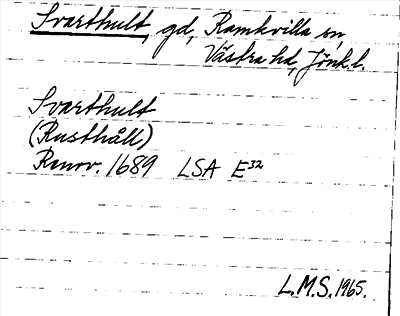 Svarthult, gd, Ramkvilla sn,
Västra hd, Jönk.l.
Svarthult
(Rusthåll)
Renov. 1689 LSA E³²
L.M.S. 1965.